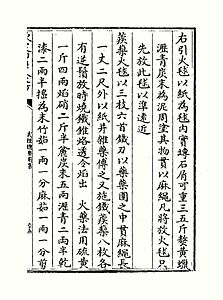 右引火毬以紙為毬內實塼石屑可重三五斤熬黃蠟
瀝青炭末為泥周塗其物貫以麻繩凡將放火毬只
先放此毬以準遠近
蒺藜火毬以三枝六首鐵刃以藥藥團之中貫麻繩長
一丈二尺外以紙并雜藥傅之又施鐵蒺藜八枚各
有逆鬚放時燒鐵錐烙透令焰出 火藥法用硫黃
一斤四兩焰硝二斤半麄炭末五兩瀝青二兩半乾
漆二兩半搗為末竹茹一兩一分麻茹一兩一分剪